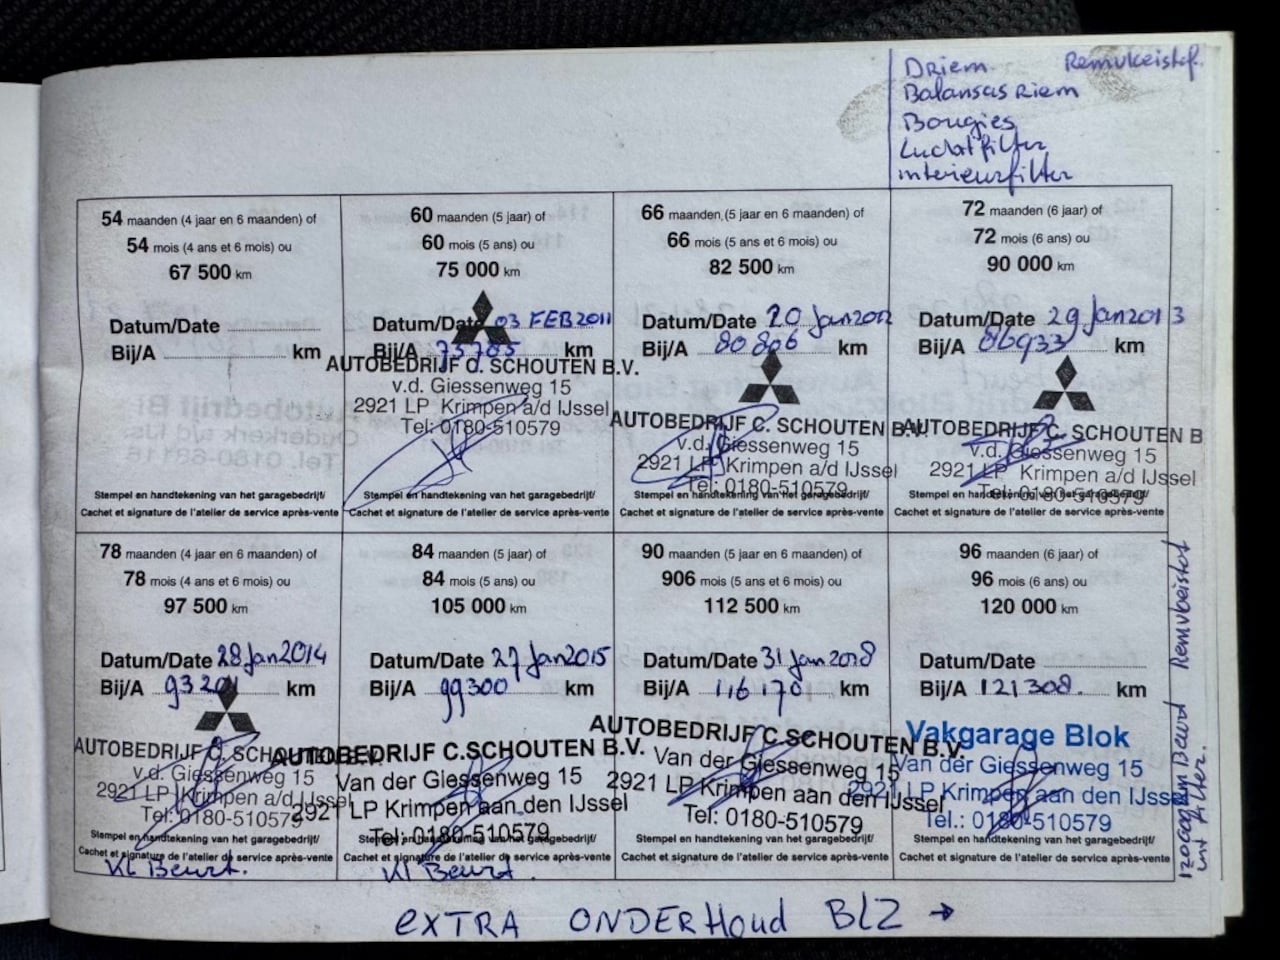 DRiem Remvloeistof.
Balansas Riem
Bougies
Luchtfilter
interieurfilter
54 maanden (4 jaar en 6 maanden) of
54 mois (4 ans et 6 mois) ou
67 500 km
Datum/Date
Bij/A km
Stempel en handtekening van het garagebedrijf/
Cachet et signature de l'atelier de service après-vente
60 maanden (5 jaar) of
60 mois (5 ans) ou
75 000 km
Datum/Date 03 FEB 2011
Bij/A 75785 km
AUTOBEDRIJF C. SCHOUTEN B.V.
v.d. Giessenweg 15
2921 LP Krimpen a/d IJssel
Tel: 0180-510579
Stempel en handtekening van het garagebedrijf/
Cachet et signature de l'atelier de service après-vente
66 maanden (5 jaar en 6 maanden) of
66 mois (5 ans et 6 mois) ou
82 500 km
Datum/Date 20 Jan 2012
Bij/A 80806 km
AUTOBEDRIJF C. SCHOUTEN B.V.
v.d. Giessenweg 15
2921 LP Krimpen a/d IJssel
Tel: 0180-510579
Stempel en handtekening van het garagebedrijf/
Cachet et signature de l'atelier de service après-vente
72 maanden (6 jaar) of
72 mois (6 ans) ou
90 000 km
Datum/Date 29 Jan 2013
Bij/A 86933 km
AUTOBEDRIJF C. SCHOUTEN B
v.d. Giessenweg 15
2921 LP Krimpen a/d IJssel
Tel: 0180-510579
Stempel en handtekening van het garagebedrijf/
Cachet et signature de l'atelier de service après-vente
78 maanden (4 jaar en 6 maanden) of
78 mois (4 ans et 6 mois) ou
97 500 km
Datum/Date 28 Jan 2014
Bij/A 93201 km
AUTOBEDRIJF C. SCHOUTEN B.V.
v.d. Giessenweg 15
2921 LP Krimpen a/d IJssel
Tel: 0180-510579
Stempel en handtekening van het garagebedrijf/
Cachet et signature de l'atelier de service après-vente
Kl Beurt.
84 maanden (5 jaar) of
84 mois (5 ans) ou
105 000 km
Datum/Date 27 Jan 2015
Bij/A 99300 km
AUTOBEDRIJF C.SCHOUTEN B.V.
Van der Giessenweg 15
2921 LP Krimpen aan den IJssel
Tel: 0180-510579
Stempel en handtekening van het garagebedrijf/
Cachet et signature de l'atelier de service après-vente
Kl Beurt.
90 maanden (5 jaar en 6 maanden) of
906 mois (5 ans et 6 mois) ou
112 500 km
Datum/Date 31 Jan 2018
Bij/A 116170 km
AUTOBEDRIJF C.SCHOUTEN B.V.
Van der Giessenweg 15
2921 LP Krimpen aan den IJssel
Tel: 0180-510579
Stempel en handtekening van het garagebedrijf/
Cachet et signature de l'atelier de service après-vente
96 maanden (6 jaar) of
96 mois (6 ans) ou
120 000 km
Datum/Date
Bij/A 121308. km
Vakgarage Blok
Van der Giessenweg 15
2921 LP Krimpen aan den IJssel
Tel.: 0180-510579
Stempel en handtekening van het garagebedrijf/
Cachet et signature de l'atelier de service après-vente
120000km Beurt Remvloeistof
int filter.
EXTRA ONDERHOUD BLZ →